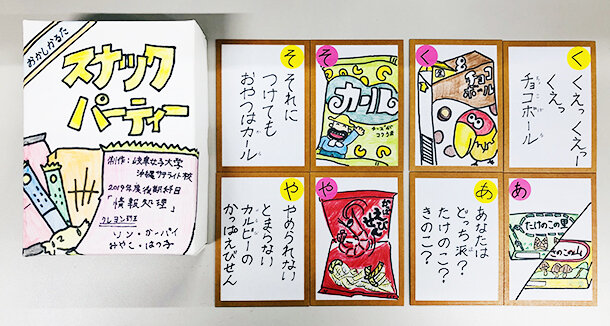 おかしかるた
スナック
パーティー
制作：岐阜女子大学
沖縄サテライト校
2019年度後期科目
「情報処理」
みやこ・はつ子
そ
それに
つけても
おやつはカール
そ
カール
く
チョコ
ボール
く
くえっ くえっ!?
くえっ
チョコボール
や
やめられない
とまらない
カルビーの
かっぱえびせん
や
かっぱえびせん
あ
あなたは
どっち派？
たけのこ？
きのこ？
あ
たけのこの里
きのこの山